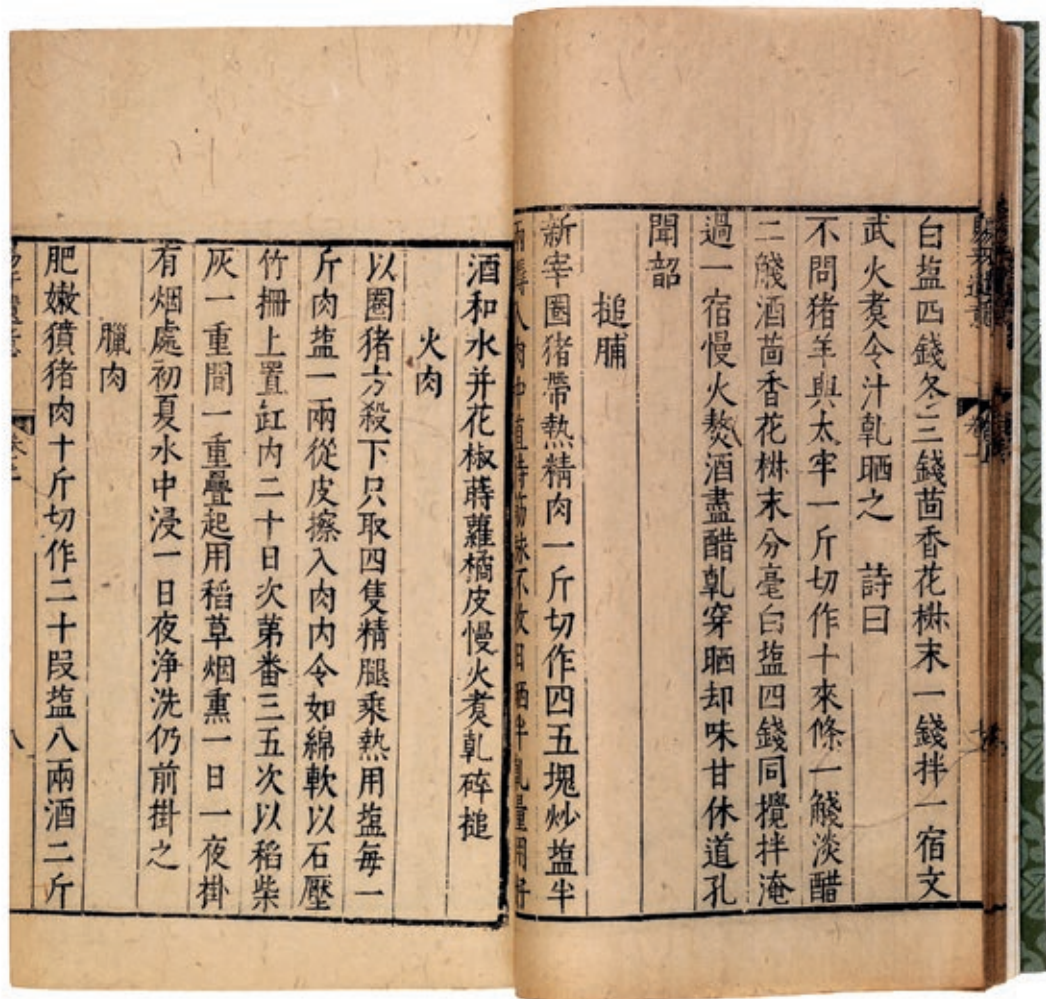 白塩四錢冬三錢茴香花椒末一錢拌一宿文
武火煑令汁乹晒之　詩曰
不問猪羊與太牢一斤切作十來條一盞淡醋
二盞酒茴香花椒末分毫白塩四錢同攪拌淹
過一宿慢火熬酒盡醋乹穿晒却味甘休道孔
聞韶
搥脯
新宰圈猪帶熱精肉一斤切作四五塊炒塩半
兩入肉中直待筋脉不收日晒半乹量用好
酒和水并花椒蒔蘿橘皮慢火煑乹碎搥
火肉
以圈猪方殺下只取四隻精腿乘熱用塩每一
斤肉塩一兩從皮擦入肉内令如綿軟以石壓
竹柵上置缸内二十日次第番三五次以稻柴
灰一重間一重疊起用稻草烟熏一日一夜掛
有烟處初夏水中浸一日夜净洗仍前掛之
臘肉
肥嫩獖猪肉十斤切作二十段塩八兩酒二斤
八